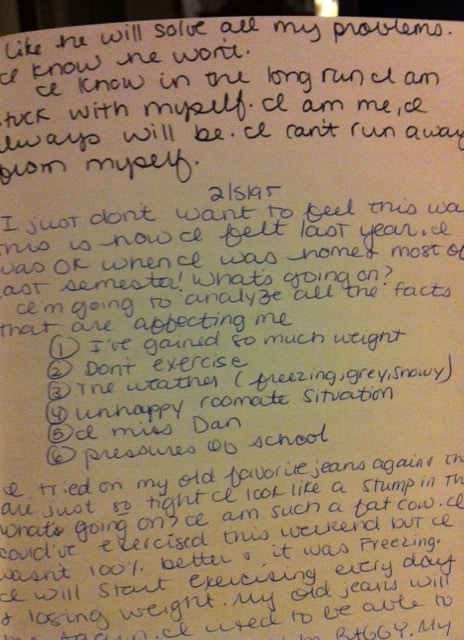 like he will solve all my problems.
I know he won't.
I know in the long run I am
stuck with myself. I am me, I
always will be. I can't run away
from myself.
2/5/95
I just don't want to feel this wa
this is how I felt last year. I
was OK when I was home most of
last semester! What's going on?
I'm going to analyze all the facts
that are affecting me
① I've gained so much weight
② Dont exercise
③ The weather (freezing, grey, snowy)
④ unhappy roomate situation
⑤ I miss Dan
⑥ pressures of school
I tried on my old favorite jeans again th
are just so tight I look like a stump in th
what's going on? I am such a fat cow. I
could've exercised this weekend but I
wasn't 100% better & it was Freezing.
I will start exercising every day
& losing weight. My old jeans will
again. I used to be able to
BAGGY. My